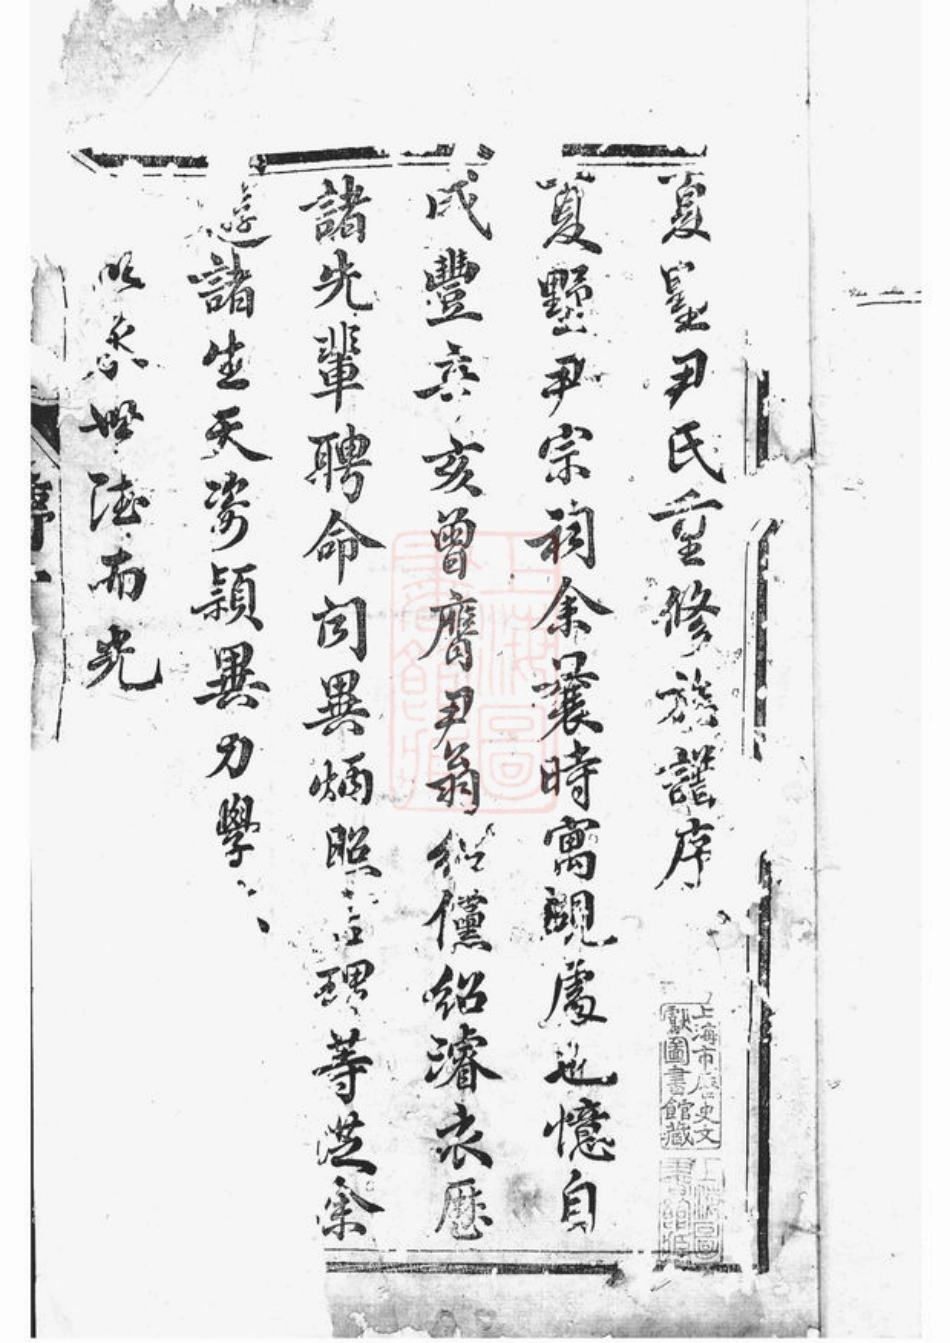 夏墅尹氏重修族譜序
夏墅尹宗祠余曩時寓覌處也憶自
咸豐辛亥曾膺尹翁紹儻紹濬衣歷
諸先輩聘命闵異炳照言理等從余
遊諸生天姿穎異力學
世陸而光
上海市歷史文
獻圖書館藏
上海圖
書館藏
上海圖
書館藏